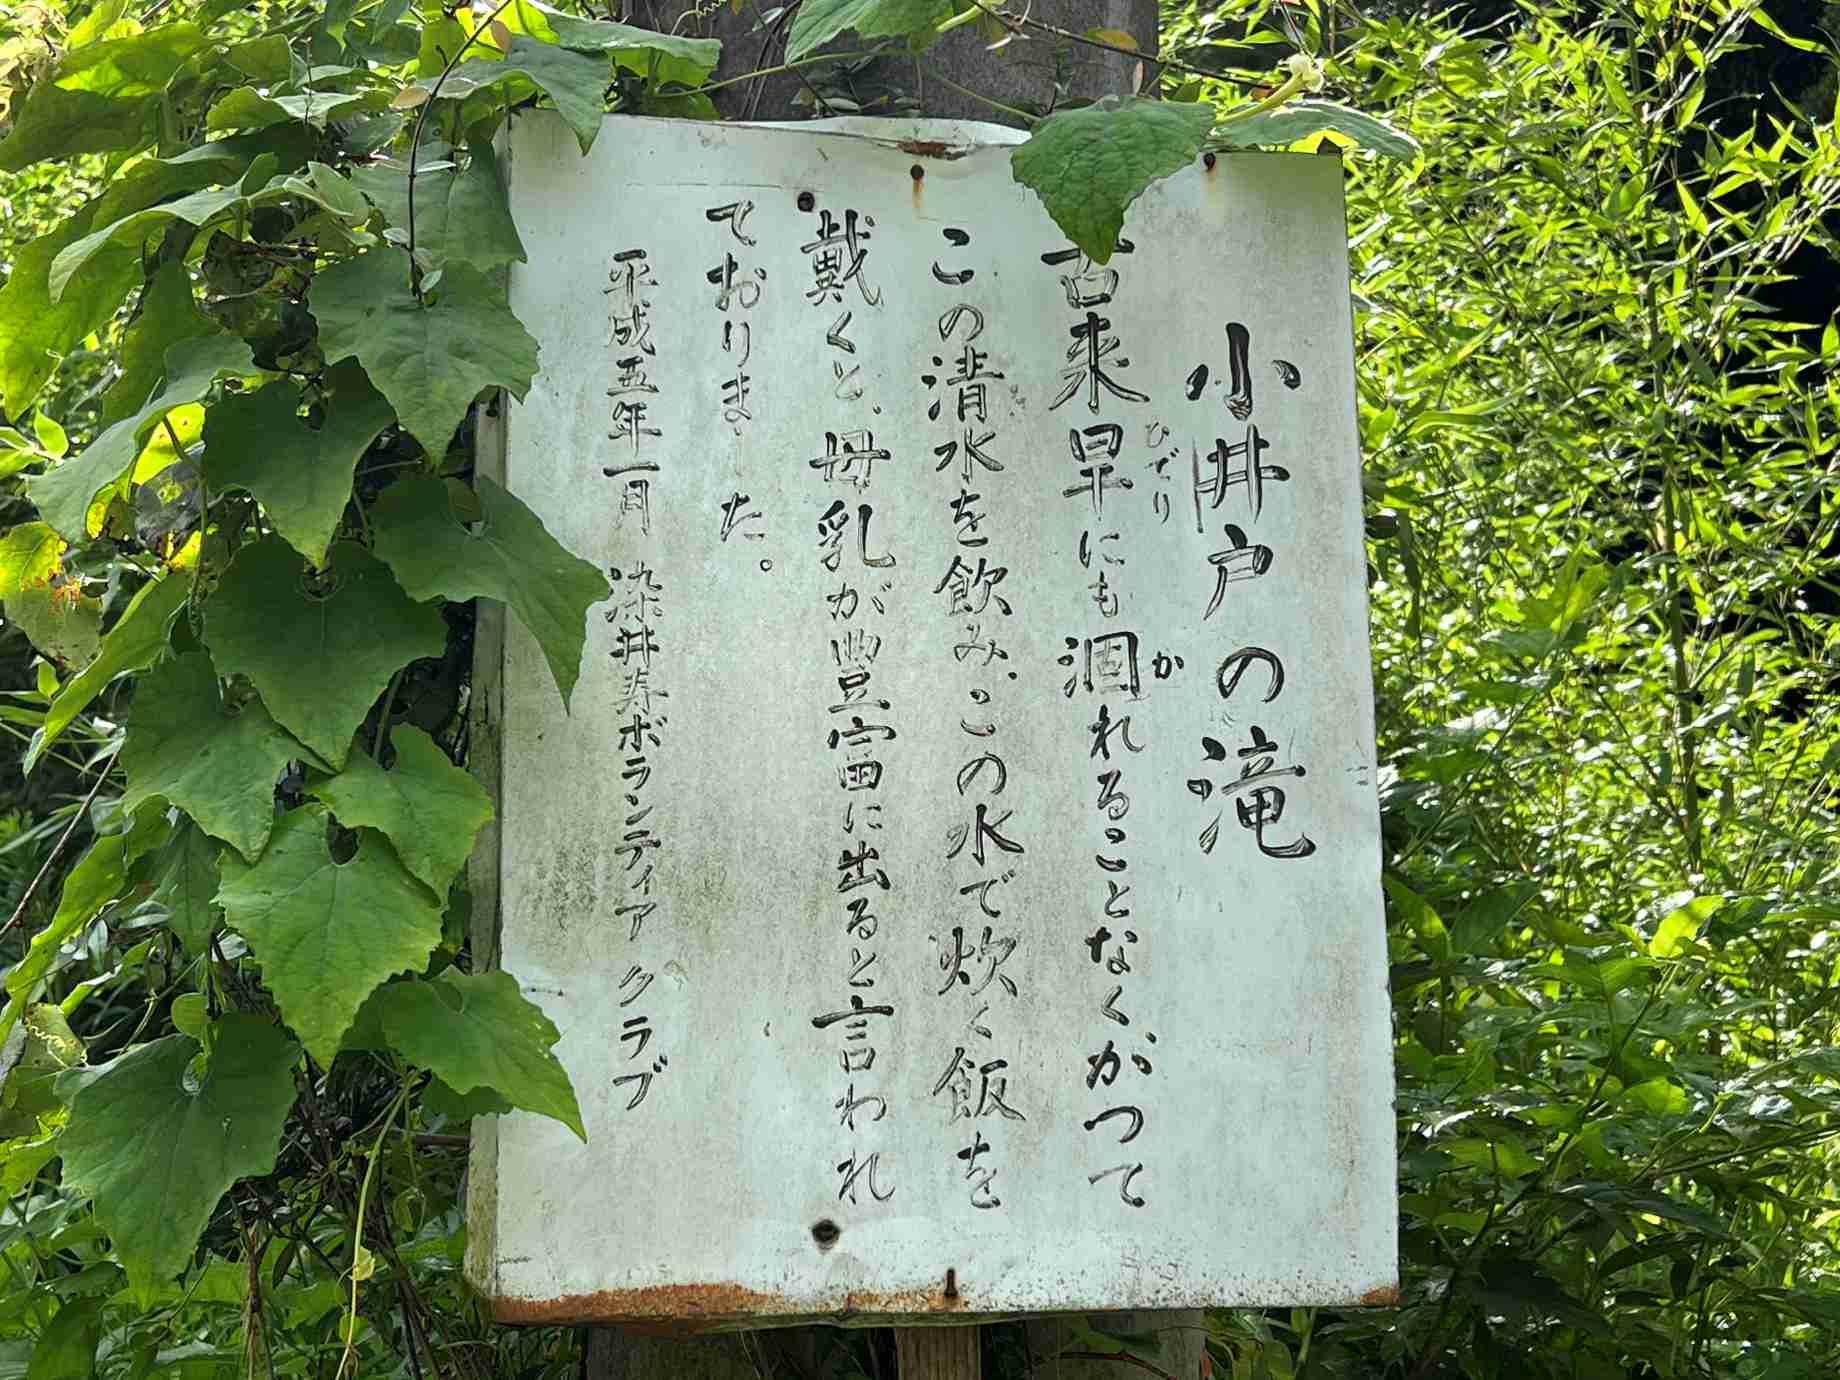 小井戸の滝
古来旱にも涸れることなく、かつて
ひでり
か
この清水を飲み、この水で炊く飯を
戴くと、母乳が豊富に出ると言われ
ておりました。
平成五年一月 染井寿ボランティアクラブ